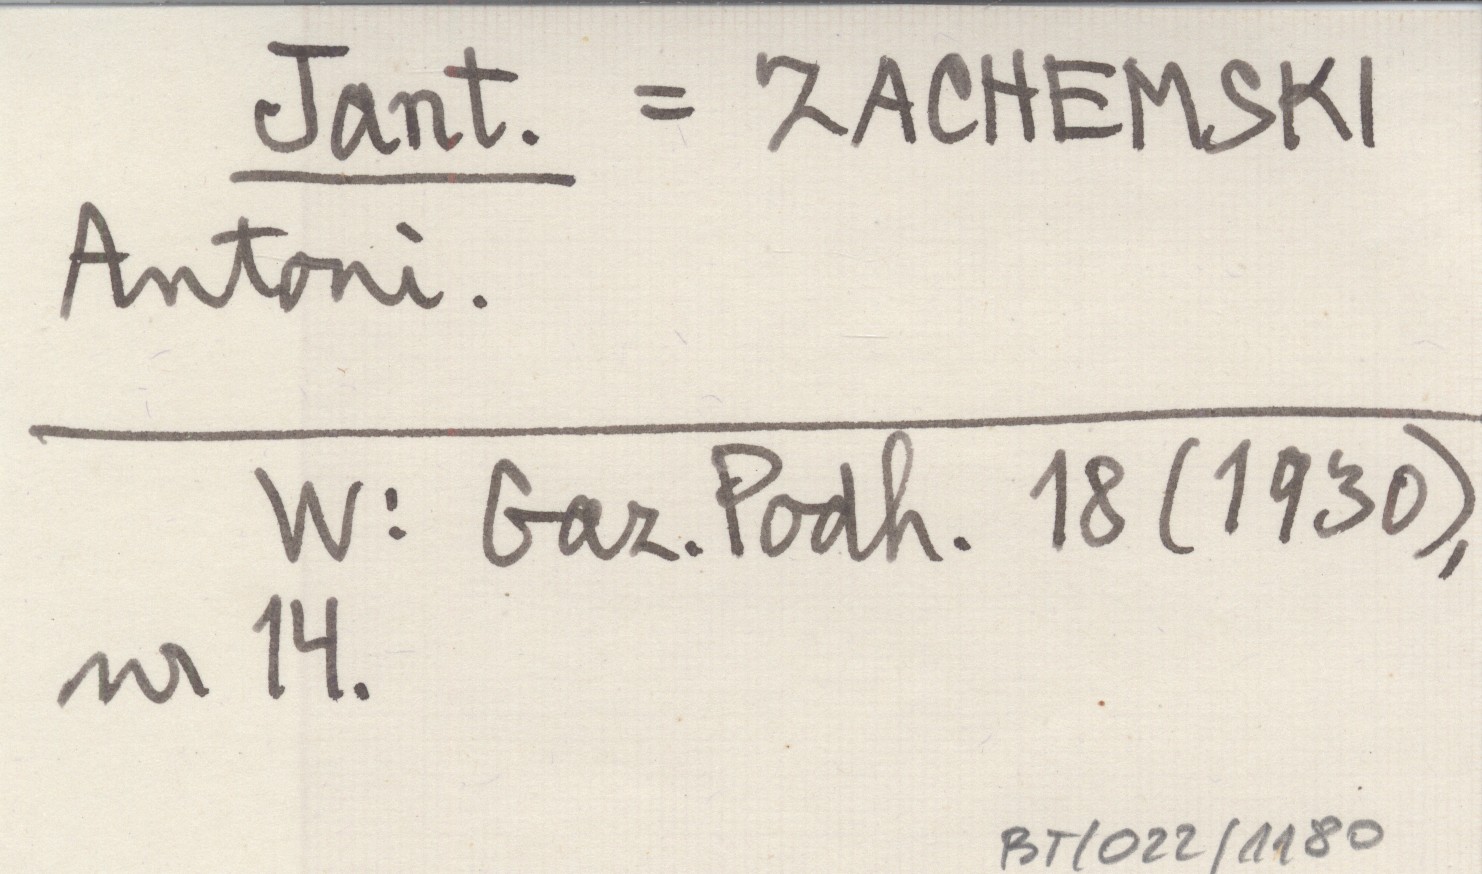 Jant. = ZACHEMSKI
Antoni.
W: Gaz. Podh. 18 (1930),
nr 14.
BT/022/1180